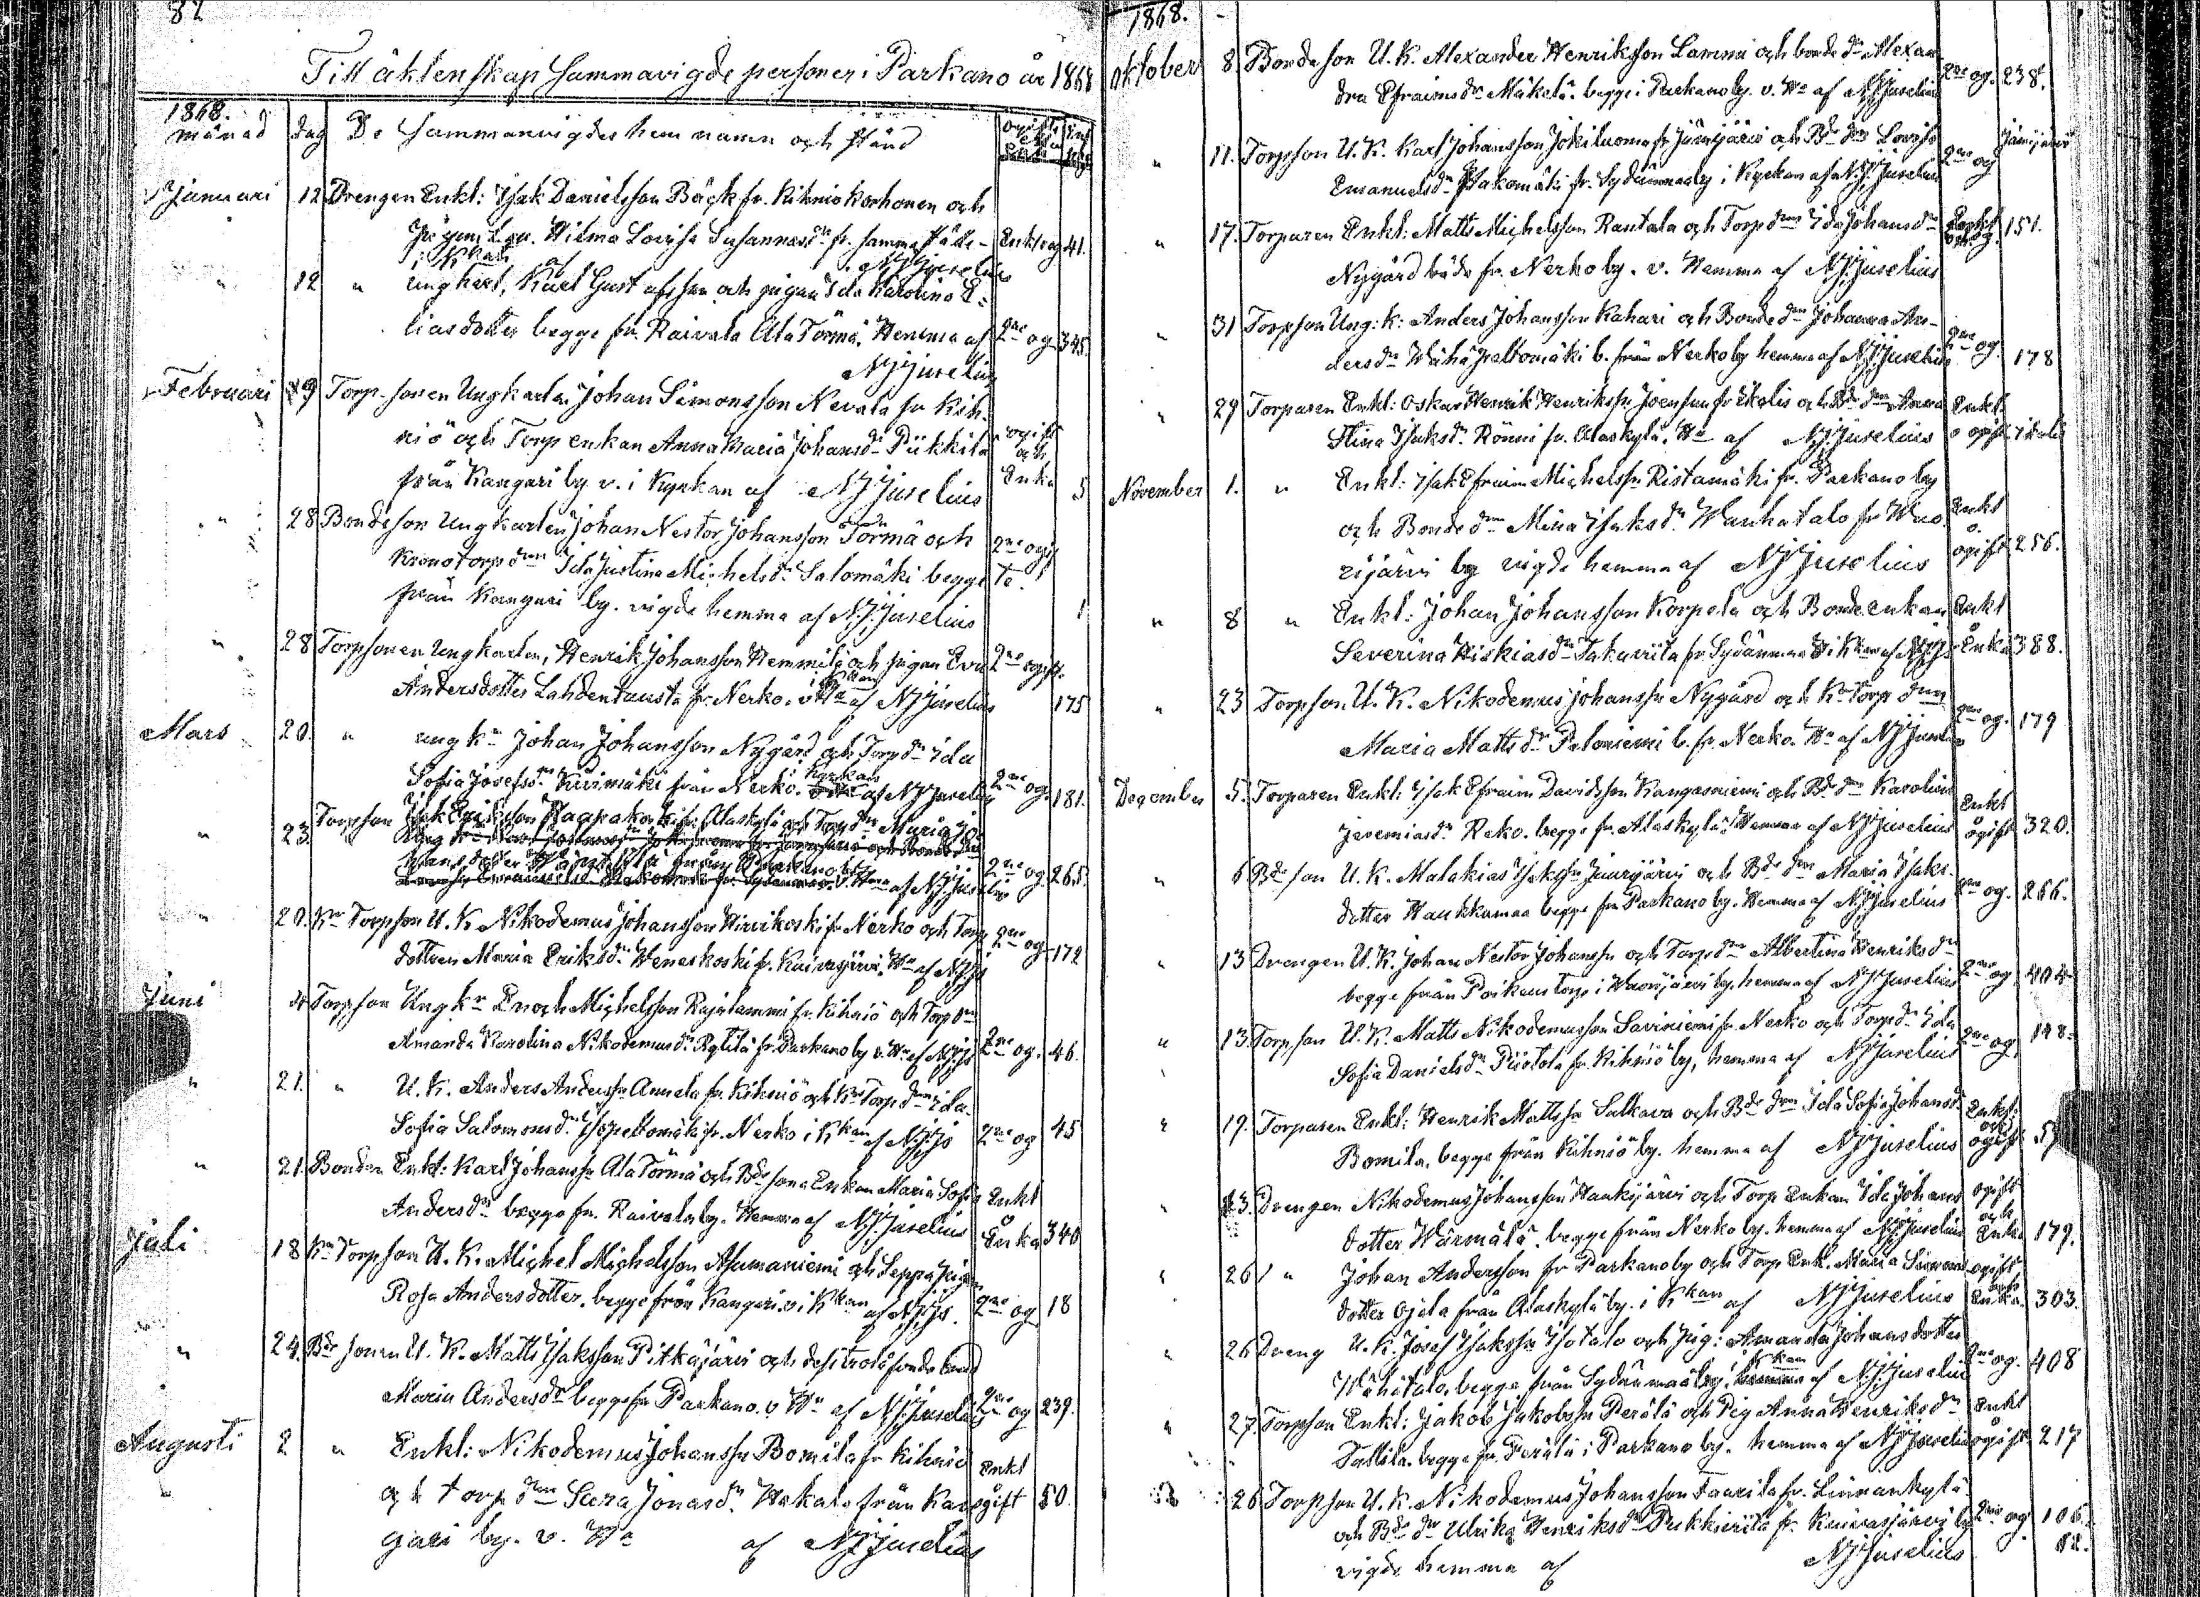 82
Till äktenskap Sammanvigde personer i Parkano år 1868
1868.
månad dag De Sammanvigdes hem namn och stånd
Januari 12 Drengen Enkl: Isak Danielsson Bäck fr. Kihniö Korhonen och
Pigan Wilma Lovisa Susannasdr fr. samma ställe - Enkl og 41.
i Kkan af NJJuselius
" 12 " ungkarl, Karl Gustafsson och pigan Ida Karolina E-
liasdotter begge fr. Raivala Ala Törmä. Hemma af 2ne og 345.
NJJuselius
Februari 9 Torp-sonen Ungkarlen Johan Simonsson Nevala fr Kih-
niö och Torp enkan Anna Maria Johansdr Piikkilä ogift och
från Kangari by v. i Kyrkan af NJJuselius Enka 5
" 28 Bondeson Ungkarlen Johan Nestor Johansson Törmä och 2ne ogif
Kronotorp dren Ida Justina Michelsdr Salomäki begge te.
från Kangari by. vigde hemma af N.J.Juselius 1
" 28 Torpsonen Ungkarlen, Henrik Johansson Hemmilä och pigan Eva 2ne ogift.
i Kkan
Andersdotter Lahdentausta fr. Nerko. af NJJuselius 175
Mars 20. " ungkn Johan Johansson Nygård och Torp dr Ida
Kyrkan
Sofia Josefsdr Kivimäki från Nerko. af NJJuselius 2ne og. 181.
" 23. Torpson Isak Eriksson Raapakoski fr. Alaskylä och Torp dr Maria Jo-
hansdotter från Parkano by
v. Hma af NJJuselius 2ne og. 265.
" 20. Kr Torpson U. K. Nikodemus Johansson Hirvikoski fr. Nerko och Torp
dottren Maria Eriksdr Weneskoski fr. Kuivasjärvi. Ha af NJJs 2ne og 172
Juni 4 Torpson Ungkn Enoch Michelsson Rajalammi fr. Kihniö och Torp dren
Amanda Karolina Nikodemusdr Kytilä fr. Parkano by v. Ha af NJJs 2ne og. 46.
" 21. " U. K. Anders Andersson Annala fr. Kihniö och Kr Torp dren Ida
Sofia Salomonsdr Isopeltomäki fr. Nerko i Kkan af NJJs 2ne og 45
" 21. Bonden Enkl: Karl Johansson Ala Törmä och Bde sons Enkan Maria Sofia Enkl
Andersdr begge fr. Raivala by. Hemma af NJJuselius o Enka 340
Juli 18 Kr Torpson U. K. Michel Michelsson Asumaniemi och Seppä Pigan
Rosa Andersdotter. begge från Kangari. v. i Kkan af NJJs. 2ne og 18
" 24. Bde sonen U. K. Matts Isaksson Pitkäjärvi och
Maria Andersdr begge fr Parkano. v Ha af NJJuselius 2ne og 239.
Augusti 2 " Enkl: Nikodemus Johansson Bomila fr Kihniö Enkl
och torp dren Sara Jonasdr Hakala från Kan- ogift 50
gari by. v. Ha af NJJuselius
1868.
Oktober 8 Bondeson U. K. Alexander Henriksson Lammi och bonde dr Alexan-
dra Efraimsdr Mäkelä. begge i Parkano by. v. Ha af NJJuselius 2ne og. 238.
" 11. Torpson U. K. Karl Johansson Jokiluoma fr Jämijärvi och Bde dren Lovisa Jämijärvi
Emanuelsdr Jaakomäki fr. Sydänmaa by i Kyrkan af NJJuselius 2ne og
" 17. Torparen Enkl: Matts Michelsson Rautala och Torp dren Ida Johansdr Enkl 151.
Nygård både fr. Nerko by. v. Hemma af NJJuselius
" 31 Torpson Ung: K: Anders Johansson Kahari och Bonde dren Johanna An-
dersdr Wähäpeltomäki b. från Nerko by hemma af NJJuselius 2ne og. 178
" 29 Torparen Enkl: Oskar Henrik Henriksson Joensuu fr Ikalis och Bde dren Anna Enkl
Stina Isaksdr Rönni fr. Alaskylä. Ha af NJJuselius o ogift Ikalis
November 1. " Enkl: Isak Efraim Michelsson Ristamäki fr. Parkano by
och Bonde dren Mina Isaksdr Wanhatalo fr Wuo- Enkl
rijärvi by vigde hemma af NJJuselius ogift 256.
" 8 " Enkl: Johan Johansson Korpela och Bonde enkan Enkl
Severina Hiskiasdr Takaviita fr. Sydänmaa i Kkan af NJJs o Enka 388.
" 23 Torpson U. K. Nikodemus Johansson Nygård och Kr Torp dren
Maria Mattsdr Paloniemi b. fr. Nerko. Ha af NJJuselius 2ne og. 179
December 5. Torparen Enkl: Isak Efraim Davidsson Kangasniemi och Bde dren Karolina Enkl
Jeremiasdr Rako. begge fr. Alaskylä. Hemma af NJJuselius ogift 320.
" 6 Bde son U. K. Malakias Isaksson Jaurijärvi och Bde dren Maria Isaks-
dotter Haukkamaa begge fr. Parkano by. Hemma af NJJuselius 2ne og. 266.
" 13 Drengen U. K. Johan Nestor Johansson och Torp dren Albertina Henriksdr
begge från Poikeus torp i Wuorijärvi by, hemma af NJJuselius 2ne og 404
" 13. Torpson U. K. Matts Nikodemusson Saviniemi fr. Nerko och Torp dr Ida
Sofia Danielsdr Piirtola fr. Kihniö by, hemma af NJJuselius 2ne og 148.
" 19. Torparen Enkl: Henrik Mattsson Salkava och Bde dren Ida Sofia Johansdr Enkl: och
Bomila, begge från Kihniö by. hemma af NJJuselius ogift 57
" 13. Drengen Nikodemus Johansson Haukijärvi och Torp Enkan Ida Johans- ogift och
dotter Wärmälä. begge från Nerko by. hemma af NJJuselius Enka 179.
" 26 " Johan Andersson fr Parkano by och Torp Enk. Maria Simons- ogift och
dotter Ojala från Alaskylä by. i Kkan af NJJuselius Enka. 303.
" 26 Dreng U. K. Josef Isaksson Isotalo och Pig: Amanda Johansdotter
Kkan
Wähätalo, begge från Sydänmaa by, i hemma af NJJuselius 2ne og. 408
" 27. Torpson Enkl: Jakob Jakobsson Perälä och Pig Anna Henriksdr Enkl
Tallila. begge fr. Perälä i Parkano by. hemma af NJJuselius ogift 217
26 Torpson U. K. Nikodemus Johansson Taarila fr. Linnankylä
och Bde dr Ulrika Henriksdr Pukkiviita fr. Kuivasjärvi by 2ne og 106.
vigde hemma af NJJuselius 82.